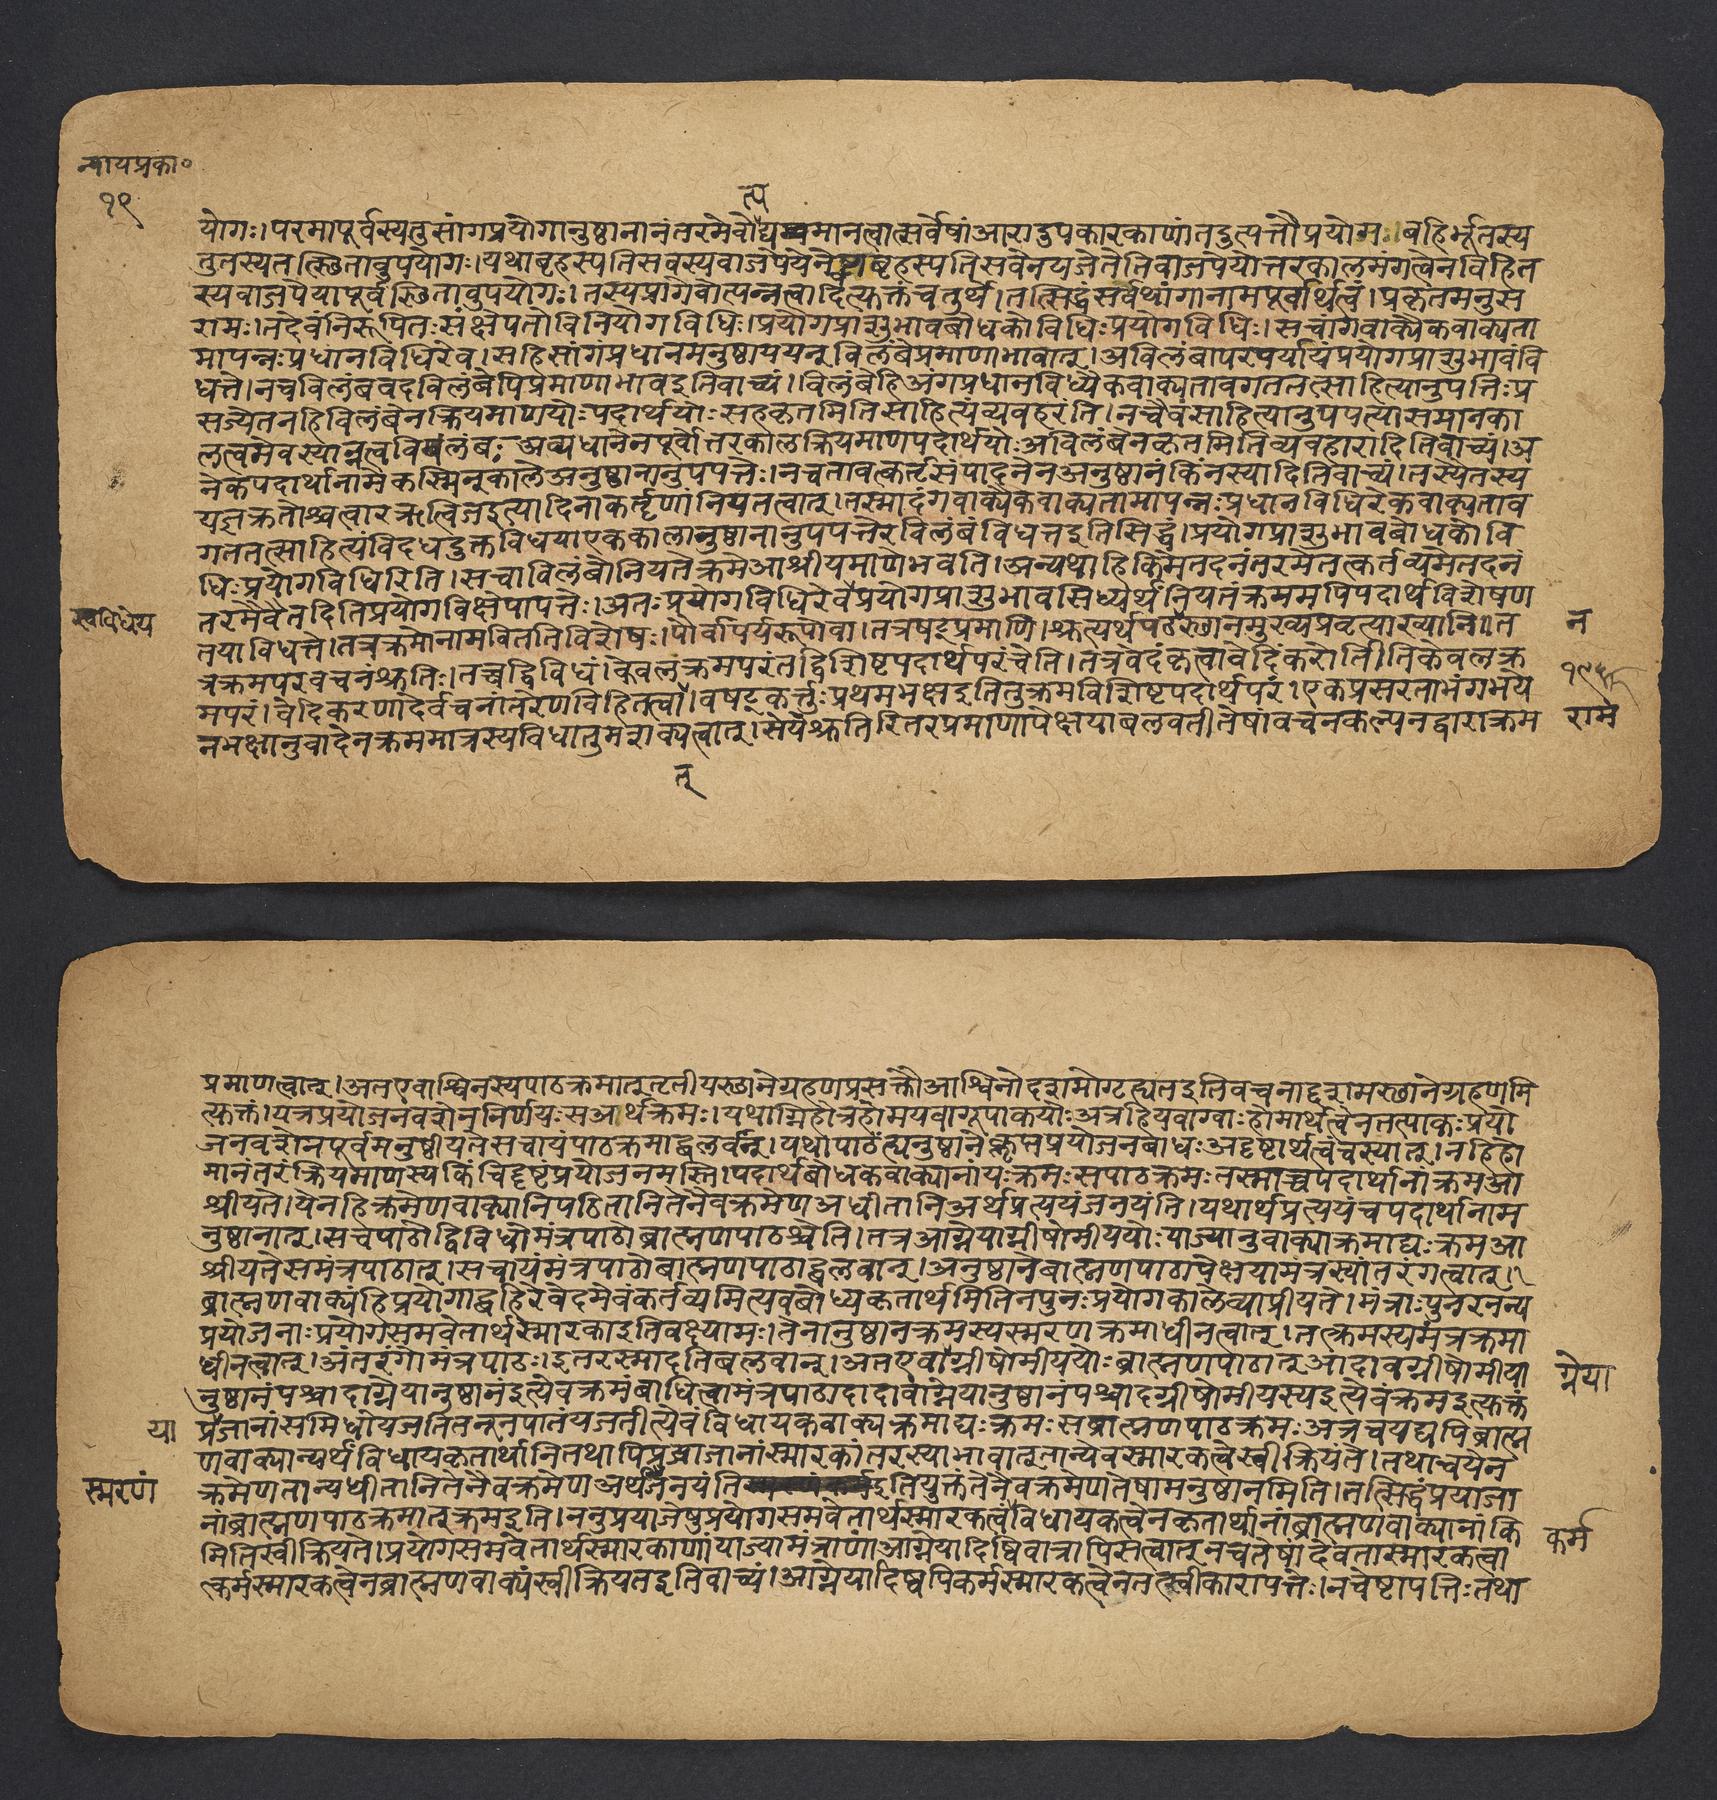 न्यायप्रका०
१९
त्प
योगः।परमापूर्वस्यतुसांगप्रयोगानुष्ठानानंतरमेवोद्यमानत्वात्सर्वेषांआरादुपकारकाणांतदुत्पत्तौप्रयोगः।बहिर्भूतस्य
तुतस्यतत्स्थितावुपयोगः।यथाबृहस्पतिसवस्यवाजपेयेनेष्ट्वाबृहस्पतिसवेनयजेतेतिवाजपेयोत्तरकालमंगत्वेनविहित
स्यवाजपेयापूर्वस्थितावुपयोगः।तस्यप्रागेवोत्पन्नत्वादित्युक्तंचतुर्थे।तत्सिद्धंसर्वथांगानामपूर्वार्थत्वं।प्रकृतमनुस
रामः।तदेवंनिरूपितःसंक्षेपतोविनियोगविधिः।प्रयोगप्राशुभावबोधकोविधिःप्रयोगविधिः।सचांगवाक्यैकवाक्यता
मापन्नःप्रधानविधिरेव।सहिसांगंप्रधानमनुष्ठापयन्विलंबेप्रमाणाभावात्।अविलंबापरपर्यायंप्रयोगप्राशुभावंवि
धत्ते।नचविलंबवदविलंबेपिप्रमाणाभावइतिवाच्यं।विलंबेहिअंगप्रधानविध्येकवाक्यतावगततत्साहित्यानुपत्तिःप्र
सज्येतनहिविलंबेनक्रियमाणयोःपदार्थयोःसहकृतमितिसाहित्यंव्यवहरंति।नचैवंसाहित्यानुपपत्यासमानका
लत्वमेवस्यान्नत्वविलंबः अव्यधानेनपूर्वोत्तरकालक्रियमाणपदार्थयोःअविलंबेनकृतमितिव्यवहारादितिवाच्यं।अ
नेकपदार्थानामेकस्मिन्कालेअनुष्ठानानुपपत्तेः।नचतावत्कर्तृसंपादनेनअनुष्ठानंकिंनस्यादितिवाच्यं।तस्यैतस्य
यज्ञक्रतोश्चत्वारऋत्विजइत्यादिनाकर्तृणांनियतत्वात्।तस्मादंगवाक्यैकवाक्यतामापन्नःप्रधानविधिरेकवाक्यताव
गततत्साहित्यंविदधदुक्तविधयाएककालानुष्ठानानुपपत्तेरविलंबंविधत्तइतिसिद्धं।प्रयोगप्राशुभावबोधकोवि
धिःप्रयोगविधिरिति।सचाविलंबोनियतेक्रमेआश्रीयमाणेभवति।अन्यथाहिकिमेतदनंतरमेतत्कर्तव्यमेतदनं
तरमेवैतदितिप्रयोगविक्षेपापत्तेः।अतःप्रयोगविधिरेवप्रयोगप्राशुभावसिध्यर्थंनियतंक्रममपिपदार्थविशेषण
तयाविधत्ते।तत्रक्रमोनामविततिविशेषः।पौर्वापर्यरूपोवा।तत्रषट्प्रमाणि।श्रुत्यर्थपठस्थानमुख्यप्रवृत्याख्यानि।त
त्रक्रमपरवचनंश्रुतिः।तच्चद्विविधं।केवलक्रमपरंतद्विशिष्टपदार्थपरंचेति।तत्रवेदंकृत्वावेदिंकरोतीतिकेवलक्र
मपरं।वेदिकरणादेर्वचनांतरेणविहितत्वा।वषट्कर्त्तुःप्रथमभक्षइतितुक्रमविशिष्टपदार्थपरं।एकप्रसरताभंगभये
नभक्षानुवादेनक्रममात्रस्यविधातुमशक्यत्वात्।सेयंश्रुतिरितरप्रमाणापेक्षयाबलवतीतेषांवचनकल्पनद्वाराक्रम
त्
न
१९
राम
प्रमाणत्वात्।अतएवाश्विनस्यपाठक्रमात्तृतीयस्थानेग्रहणप्रसक्तौआश्विनोदशमोगृह्यतइतिवचनाद्दशमस्थानेग्रहणमि
त्युक्तं।यत्रप्रयोजनवशेननिर्णयःसआर्थक्रमः।यथाग्निहोत्रहोमयवागूपाकयोःअत्रहियवाग्वाःहोमार्थत्वेनतत्पाकःप्रयो
जनवशेनपूर्वमनुष्ठीयतेसचायंपाठक्रमाद्बलवान्।यथापाठंत्यनुष्ठानेकॢप्तप्रयोजनबाधःअदृष्टार्थत्वंचस्यात्।नहिहो
मानंतरंक्रियमाणस्यकिंचिद्दृष्टंप्रयोजनमस्ति।पदार्थबोधकवाक्यानांयःक्रमःसपाठक्रमःतस्माच्चपदार्थानांक्रमआ
श्रीयते।येनहिक्रमेणवाक्यानिपठितानितेनैवक्रमेणअधीतानिअर्थप्रत्ययंजनयंति।यथार्थप्रत्ययंचपदार्थानाम
नुष्ठानात्।सचपाठोद्विविधोमंत्रपाठोब्राह्मणपाठश्चेति।तत्रआग्नेयाग्नीषोमीययोःयाज्यानुवाक्याक्रमाद्यःक्रमआ
श्रीयतेसमंत्रपाठात्।सचायंमंत्रपाठोब्राह्मणपाठाद्बलवान्।अनुष्ठानेब्राह्मणपाठापेक्षयामंत्रस्यांतरंगत्वात्।
ब्राह्मणवाक्यंहिप्रयोगाद्बहिरेवेदमेवंकर्तव्यमित्यवबोध्यकृतार्थमितिनपुनःप्रयोगकालेव्याप्रीयते।मंत्राःपुनरनन्य
प्रयोजनाःप्रयोगसमवेतार्थस्मारकाइतिवक्ष्यामः।तेनानुष्ठानक्रमस्यस्मरणक्रमाधीनत्वात्।तत्क्रमस्यमंत्रक्रमा
धीनत्वात्।अंतरंगोमंत्रपाठः।इतरस्मादतिबलवान्।अतएवाग्नीषोमीययोःब्राह्मणपाठात्आदावग्नीषोमीया
ग्नेया
नुष्ठानंपश्चादाग्नेयानुष्ठानंइत्येवक्रमंबाधित्वामंत्रपाठादादावाग्नेयानुष्ठानंपश्चादग्नीषोमीयस्यइत्येवंक्रमइत्युक्तं
या
प्रजानांसमिधोयजतितनूनपातंयजतीत्येवंविधायकवाक्यक्रमाद्यःक्रमःसब्राह्मणपाठक्रमःअत्रचयद्यपिब्राह्म
णवाक्यान्यर्थंविधायकृतार्थानितथापिप्रयाजानांस्मारकांतरस्याभावात्तान्येवस्मारकत्वेस्वीक्रियंते।तथाचयेन
स्मरणं
क्रमेणतान्यधीतानितेनैवक्रमेणअर्थजनयंतिइतियुक्तंतेनैवक्रमेणतेषामनुष्ठानमिति।तत्सिद्धंप्रयाजा
नांब्राह्मणपाठक्रमात्क्रमइति।ननुप्रयाजेषुप्रयोगसमवेतार्थस्मारकत्वंविधायकत्वेनकृतार्थानांब्राह्मणवाक्यानांकि
कर्म
मितिस्वीक्रियते।प्रयोगसमवेतार्थस्मारकाणांयाज्यामंत्राणांआग्नेयादिष्विवात्रापिसत्वात्नचतेषांदेवतास्मारकत्वा
त्कर्मस्मारकत्वेनब्राह्मणवाक्यंस्वीक्रियतइतिवाच्यं।आग्नेयादिष्वपिकर्मस्मारकत्वेनतत्स्वीकारापत्तेः।नचेष्टापत्तिःतथा